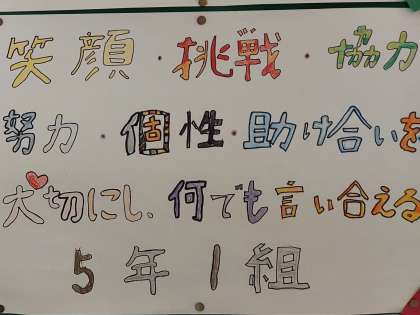 笑顔・挑戦・協力
努力・個性・助け合いを
大切にし、何でも言い合える
5年1組